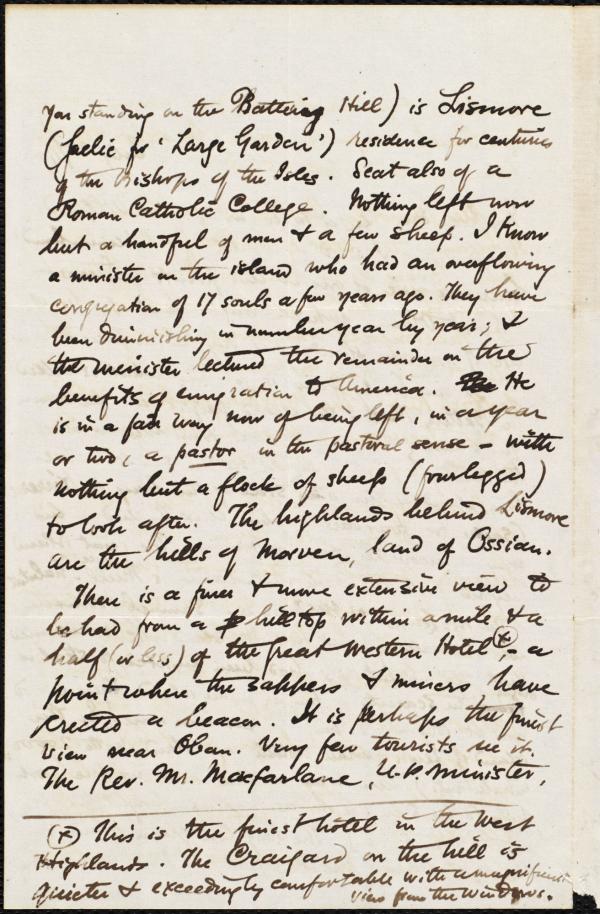 you standing on the Battery Hill) is Lismore
(Gaelic for 'Large Garden') residence for centuries
of the Bishops of the Isles. Seat also of a
Roman Catholic College. Nothing left now
but a handful of men & a few sheep. I know
a minister on the island who had an overflowing
congregation of 17 souls a few years ago. They have
been diminishing in number year by year; &
the minister lectured the remainder on the
benefits of emigration to America. He
is in a fair way now of being left, in a year
or two, a pastor in the pastoral sense - with
nothing but a flock of sheep (fourlegged)
to look after. The highlands behind Lismore
are the hills of Morven, land of Ossian.
There is a finer & more extensive view to
be had from a hilltop within a mile & a
half (or less) of the Great Western Hotel (x), - a
point where the sappers & miners have
erected a beacon. It is perhaps the finest
view near Oban. Very few tourists see it.
The Rev. Mr. Macfarlane, U.P. minister,
(x) This is the finest hotel in the West
Highlands. The Craigard on the hill is
quieter & exceedingly comfortable with a magnificent
view from the windows.